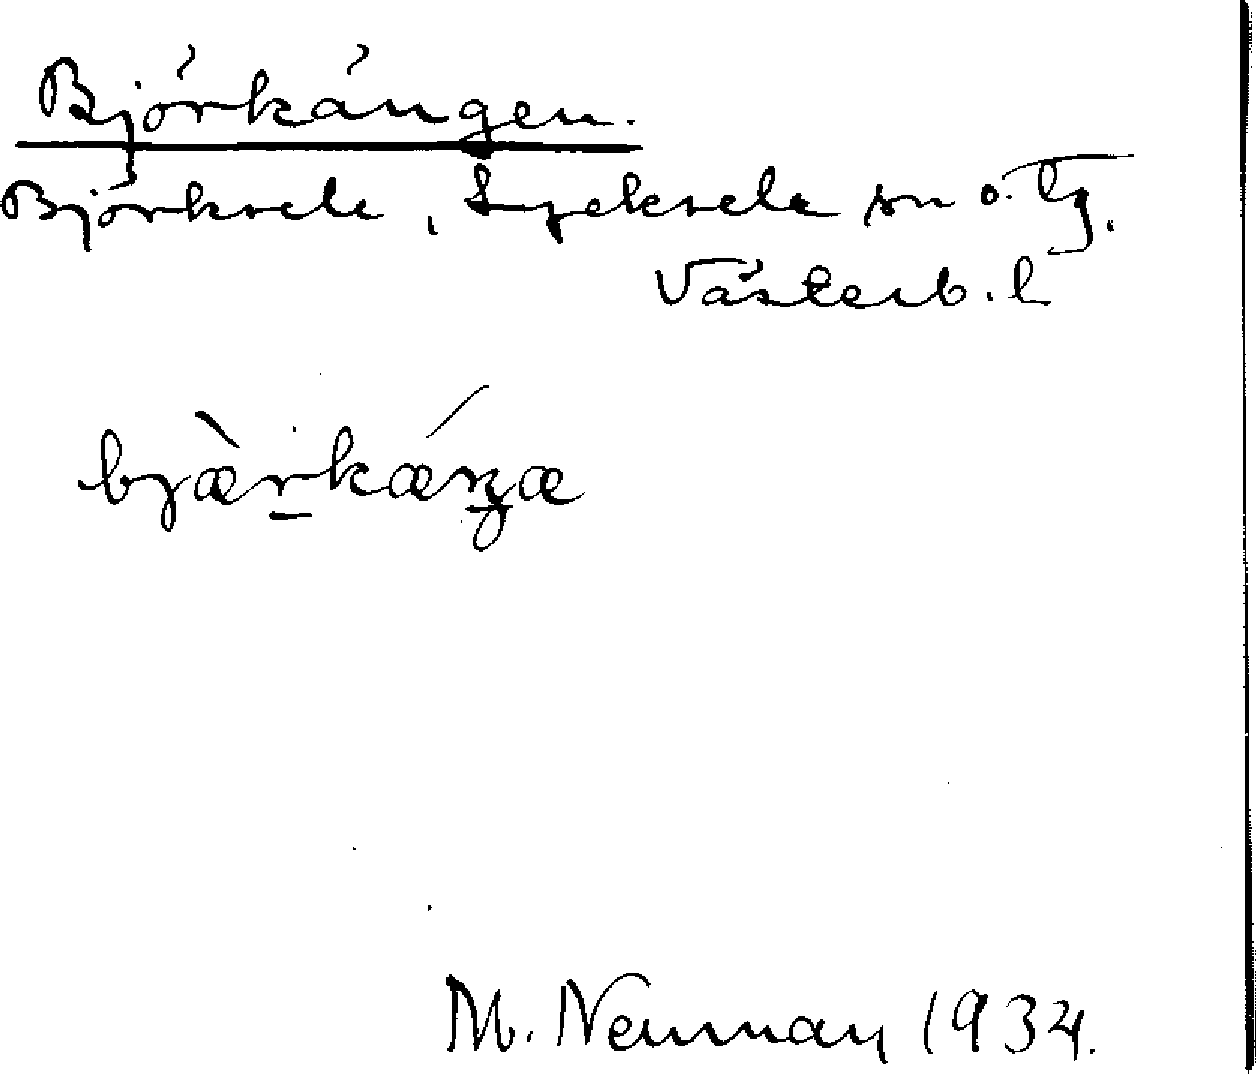 Björkängen.
Björksele, Lycksele sn o. lg.
Västerb. l
bjær̠kæŋæ
M. Neuman 1934.